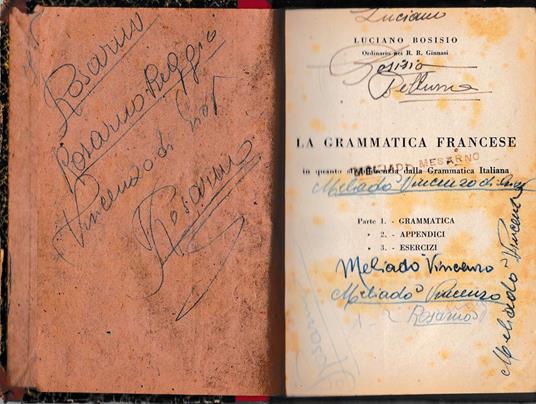 Rosarno
Rosarno Reggio
Vincenzo di
Rosarno
Luciano
LUCIANO BOSISIO
Ordinario nei R. R. Ginnasi
Bosisio
Belluno
LA GRAMMATICA FRANCESE
in quanto dalla Grammatica Italiana
Meliadò Vincenzo di
Parte 1. - GRAMMATICA
» 2. - APPENDICI
» 3. - ESERCIZI
Meliadò Vincenzo
Meliadò Vincenzo
Rosarno
Meliadò Vincenzo
Rosarno